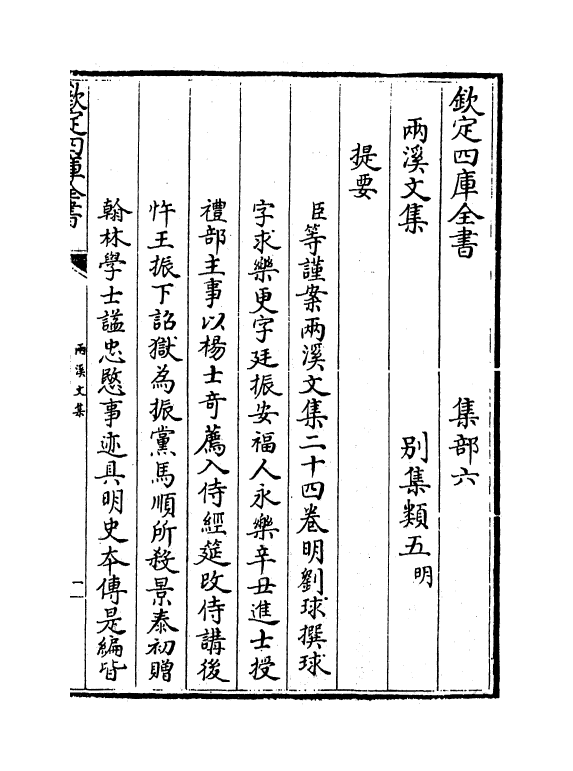 欽定四庫全書 集部六
兩溪文集 别集類五明
提要
臣等謹案兩溪文集二十四卷明劉球撰球
字求樂更字廷振安福人永樂辛丑進士授
禮部主事以楊士奇薦入侍經筵改侍講後
忤王振下詔獄為振黨馬順所殺景泰初贈
翰林學士諡忠愍事迹具明史本傳是編皆
欽定四庫全書
兩溪文集
一